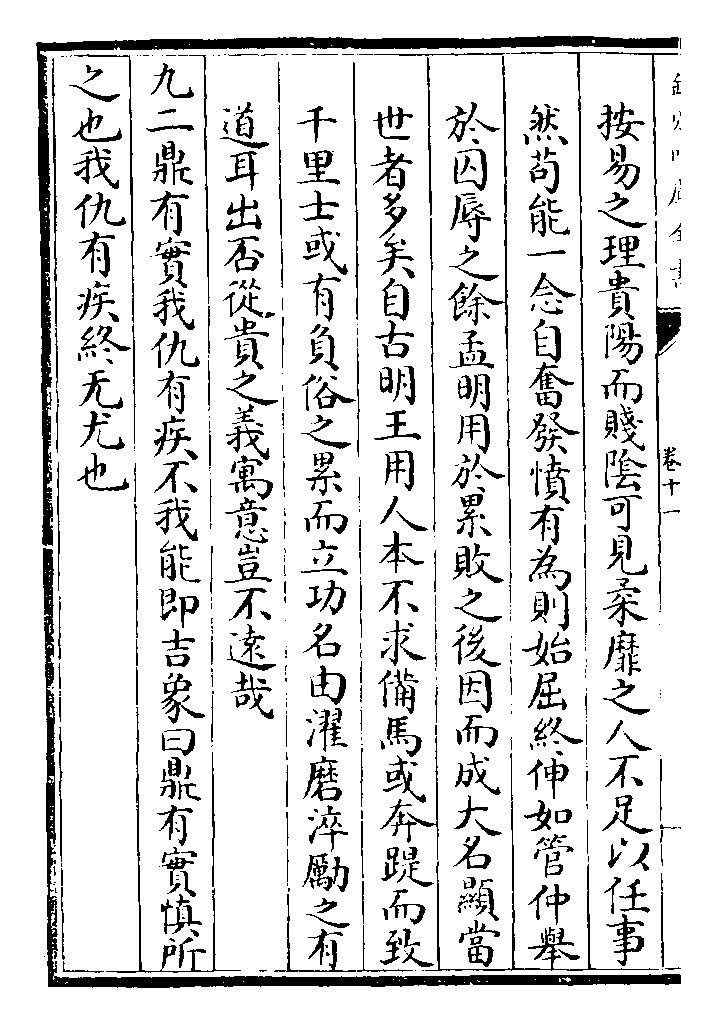 按易之理貴陽而賤陰可見柔靡之人不足以任事
然苟能一念自奮發憤有為則始屈終伸如管仲舉
於囚辱之餘孟明用於累敗之後因而成大名顯當
世者多矣自古明王用人本不求備馬或奔踶而致
千里士或有負俗之累而立功名由濯磨淬勵之有
道耳出否從貴之義寓意豈不遠哉
九二鼎有實我仇有疾不我能即吉象曰鼎有實慎所
之也我仇有疾終无尤也
卷十一